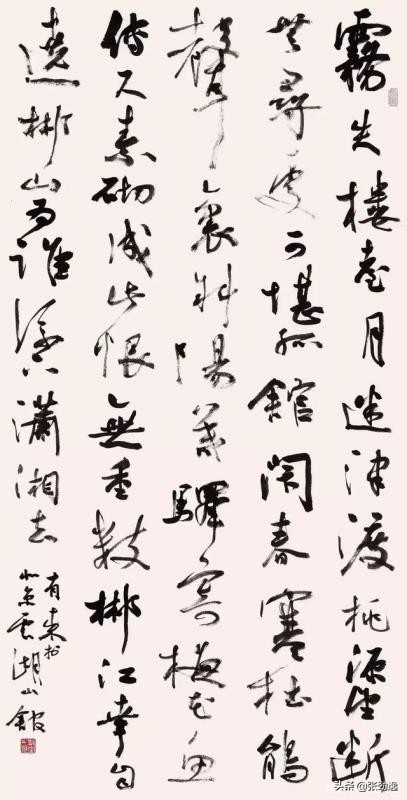 霧失樓臺月迷津渡桃源望斷
無尋處可堪孤館閉春寒杜鵑
聲裏斜陽暮驛寄梅花魚
傳尺素砌成此恨無重數郴江幸自
遶郴山為誰流下瀟湘去
有來於
北京雲湖山館
头条 @张劲逸